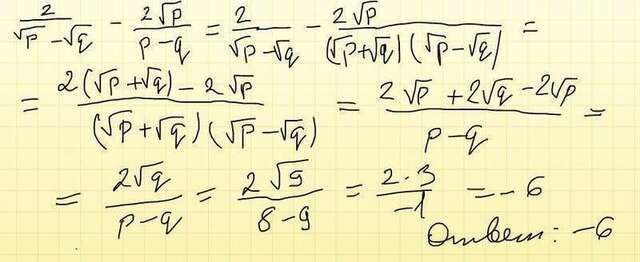 2/(√p - √q) - 2√p/(p - q) = 2/(√p - √q) - 2√p/((√p + √q)(√p - √q)) =
= (2(√p + √q) - 2√p)/((√p + √q)(√p - √q)) = (2√p + 2√q - 2√p)/(p - q) =
= 2√q/(p - q) = 2√9/(8 - 9) = 2·3/(-1) = -6
Ответ: -6